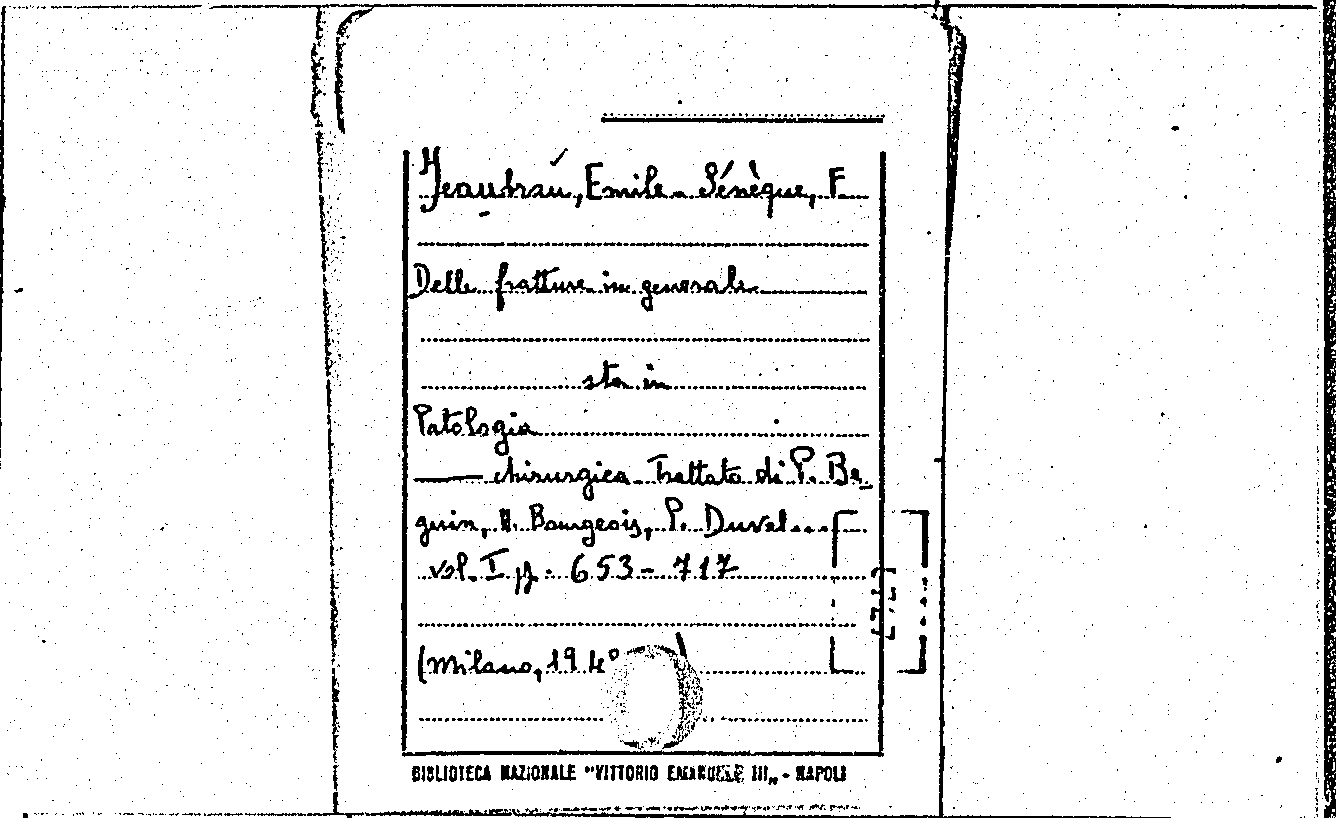 Jeaubrau, Emile - Sénèque, F.
Delle fratture in generale
sta in
Patologia
—— chirurgica - Trattato di P. Be_
guin, H. Bourgeois, P. Duval....
vol. I pp. 653 - 717
(Milano, 194
BIBLIOTECA NAZIONALE "VITTORIO EMANUELE III„ - NAPOLI